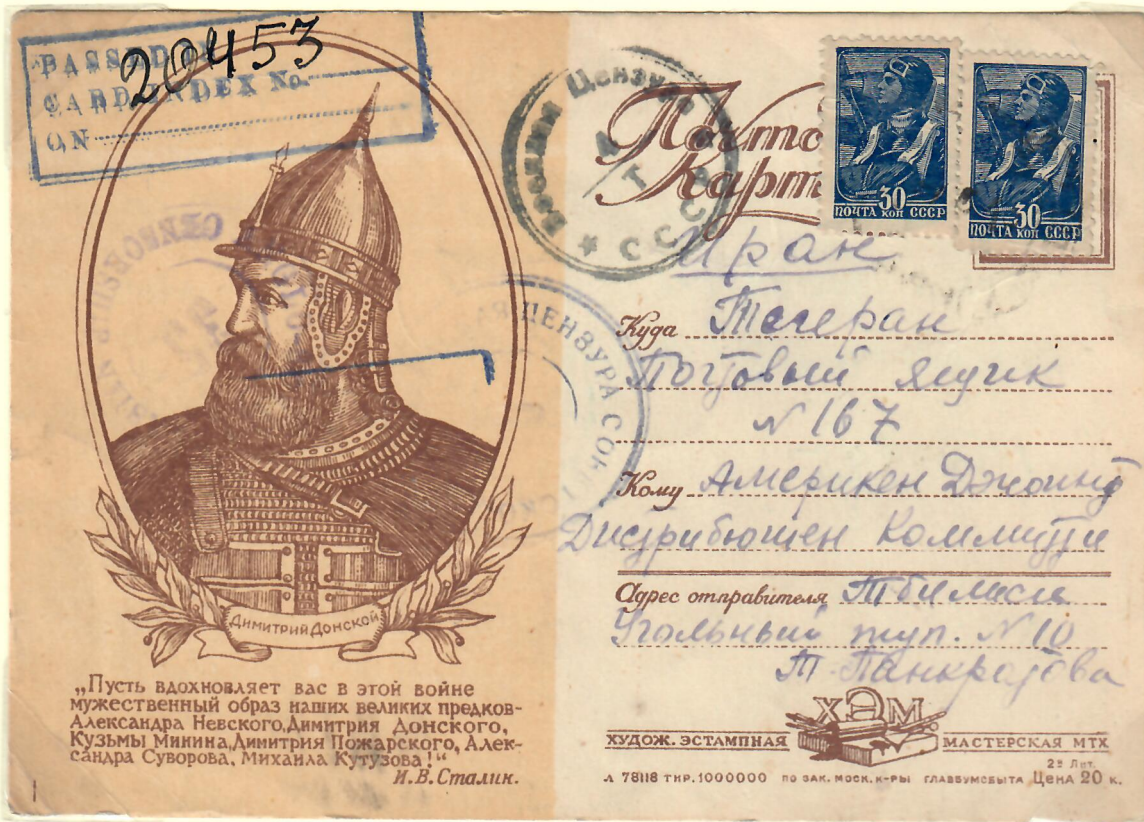 20453
PASSED
CARD INDEX No.
ON
Почто
Карт
Цензура
СССР
30
ПОЧТА КОП СССР
30
ПОЧТА КОП СССР
Иран
Куда Тегеран
Почтовый ящик
N 167
ЦЕНЗУРА
Кому Америкен Джоинт
Дистрибюшен Коммитти
Адрес отправителя Тбилиси
Угольный туп. N 10
Т. Панкратова
ДИМИТРИЙ ДОНСКОЙ
„Пусть вдохновляет вас в этой войне
мужественный образ наших великих предков-
Александра Невского, Димитрия Донского,
Кузьмы Минина, Димитрия Пожарского, Алек-
сандра Суворова, Михаила Кутузова!"
И.В.Сталин.
ХЭМ
ХУДОЖ. ЭСТАМПНАЯ МАСТЕРСКАЯ МТХ
Л 78118 ТИР. 1000000 ПО ЗАК. МОСК. К-РЫ ГЛАВБУМСБЫТА Цена 20 к.